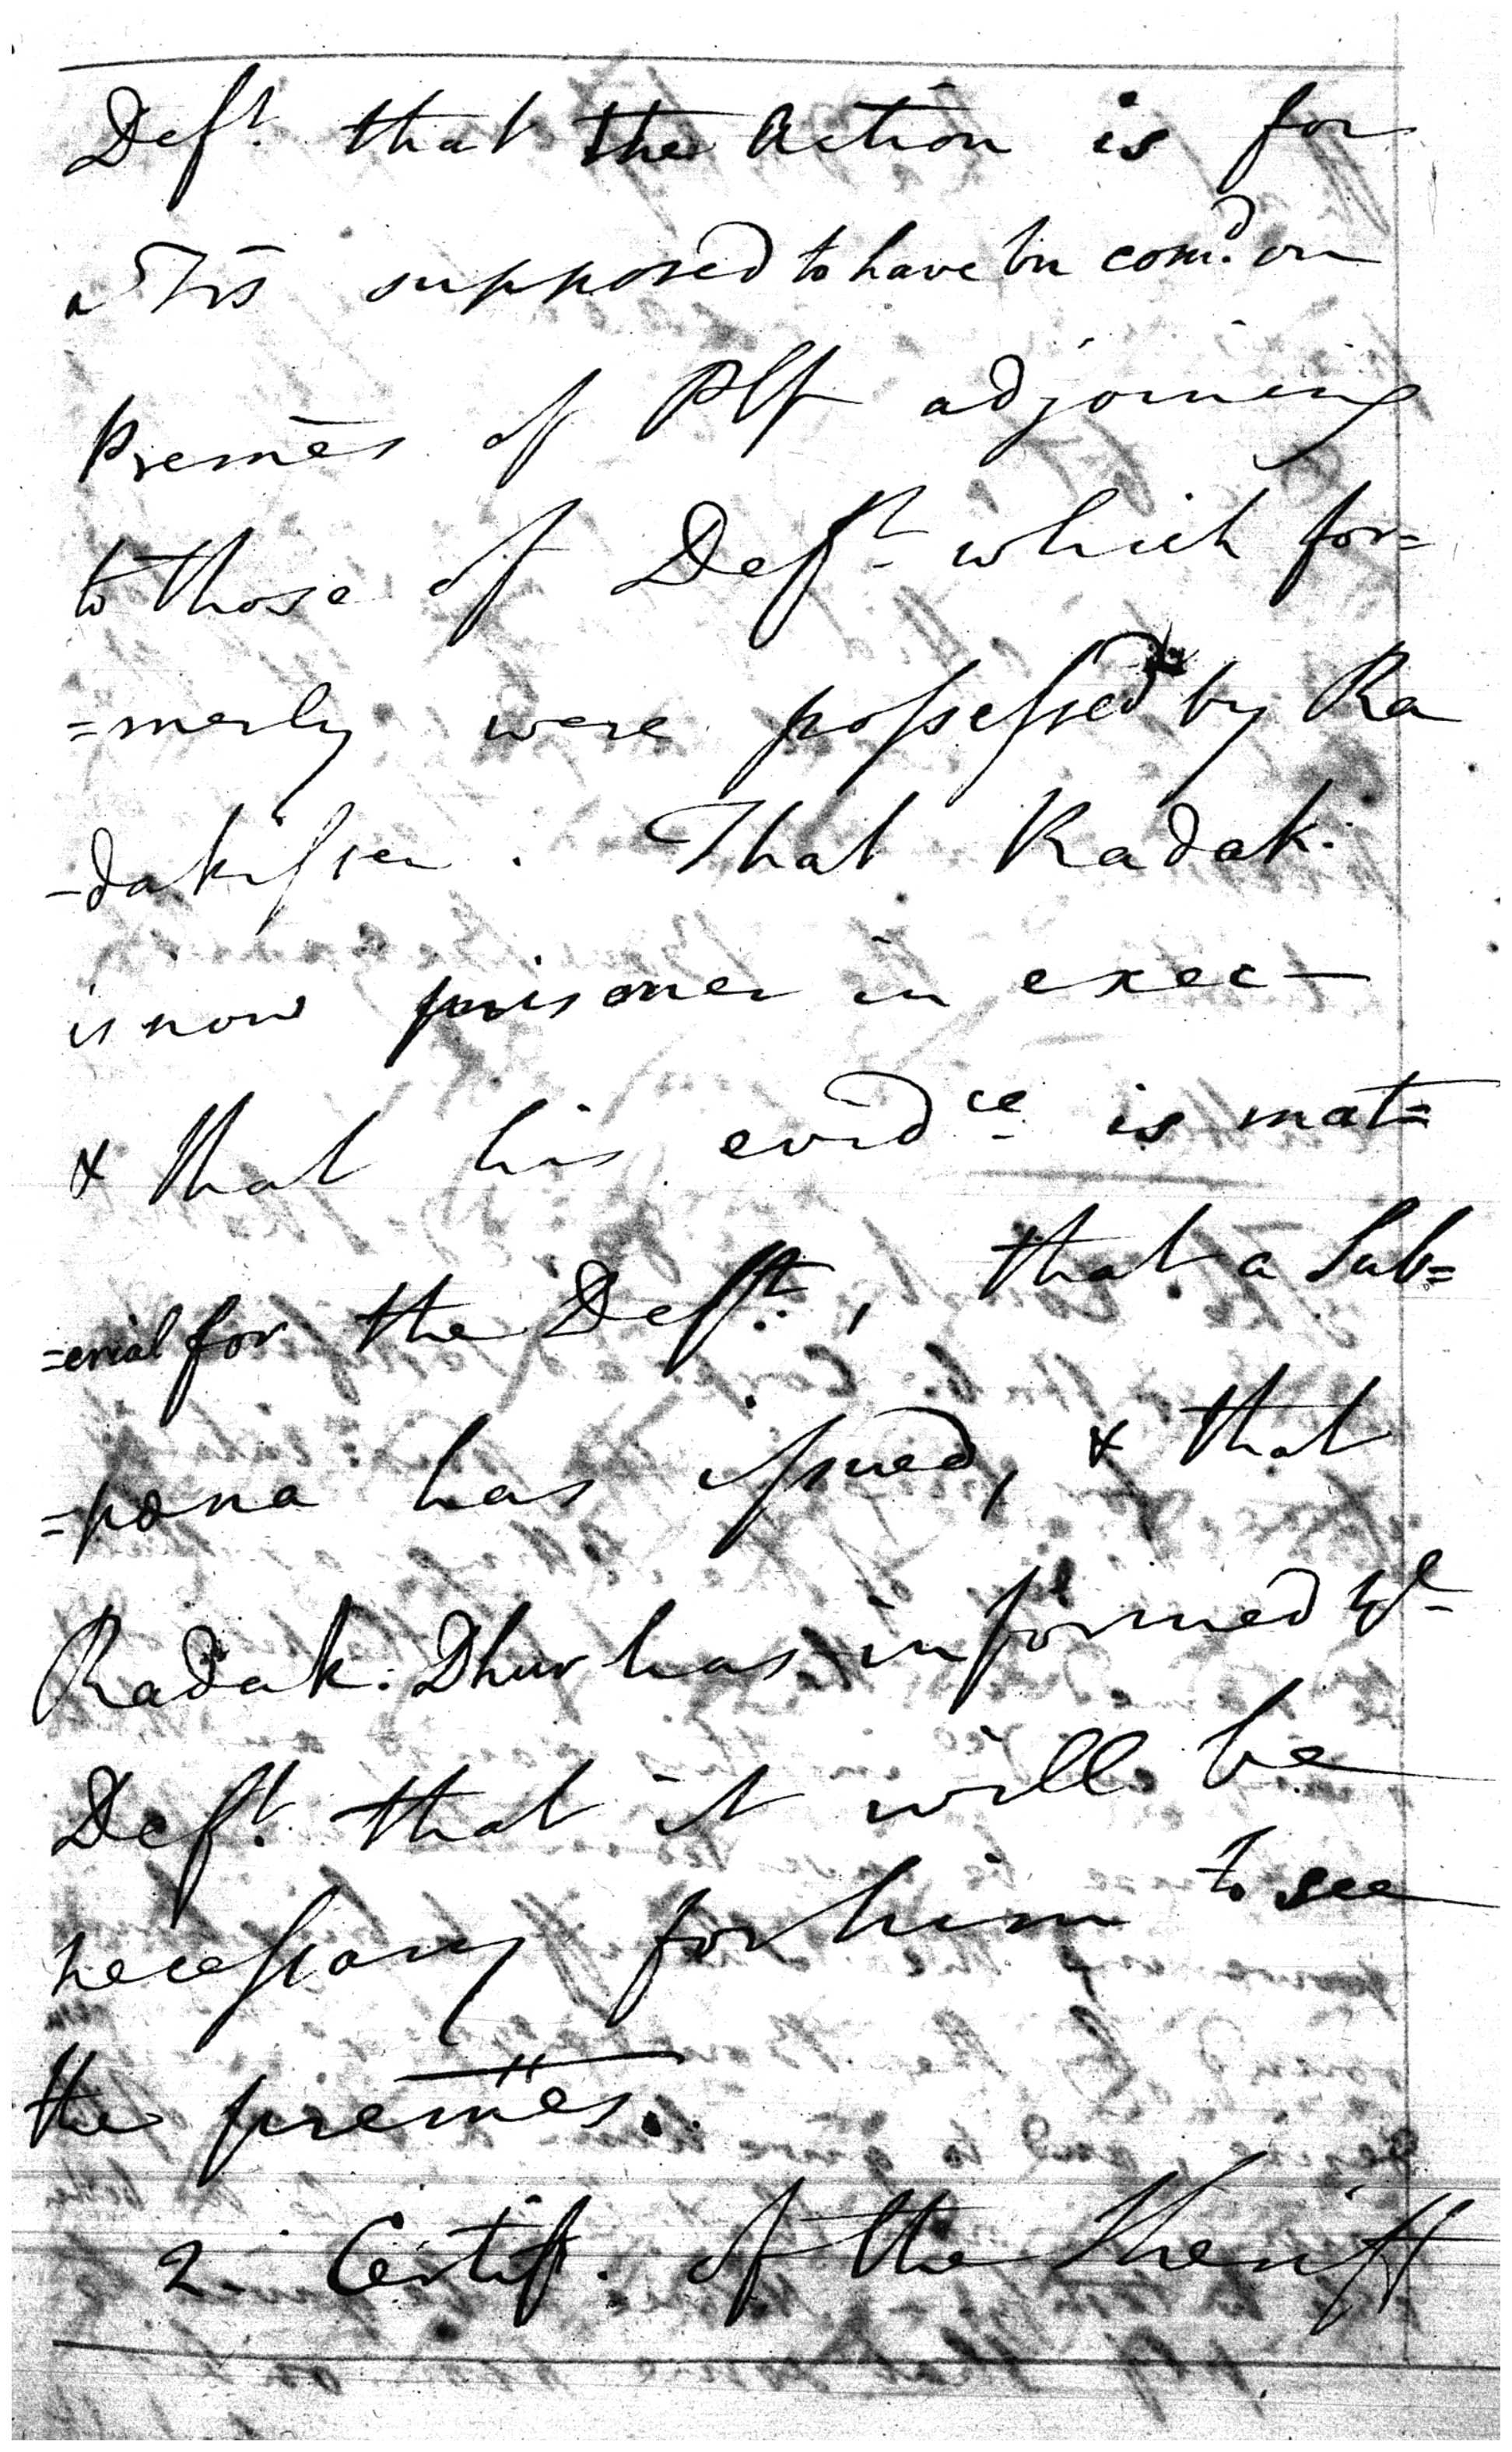 Deft. that the action is for
a Trs supposed to have bn com.d on
premes of Plf adjoining
to those of Deft. which for=
=merly were possessed by Ra
-dakissen. That Radak.
is now prisoner in exec—
& that his evid.ce is mat=
=erial for the Deft., that a Sub=
=pœna has issued, & that
Radak: Dhur has informed ye
Deft. that it will be
necessary for him to see
the premes.
2. Certif. of the Sheriff